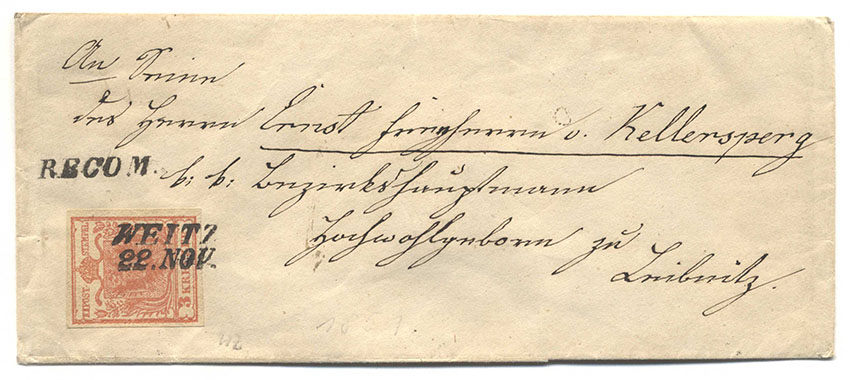 An Seine
des Herrn Ernst Freyherrn v. Kellersperg
RECOM.
k: k: Bezirkshauptmann
Hochwohlgeborn zu
Leibnitz.
WEITZ
22. NOV.
KKPOST-STEMPEL
3 KR